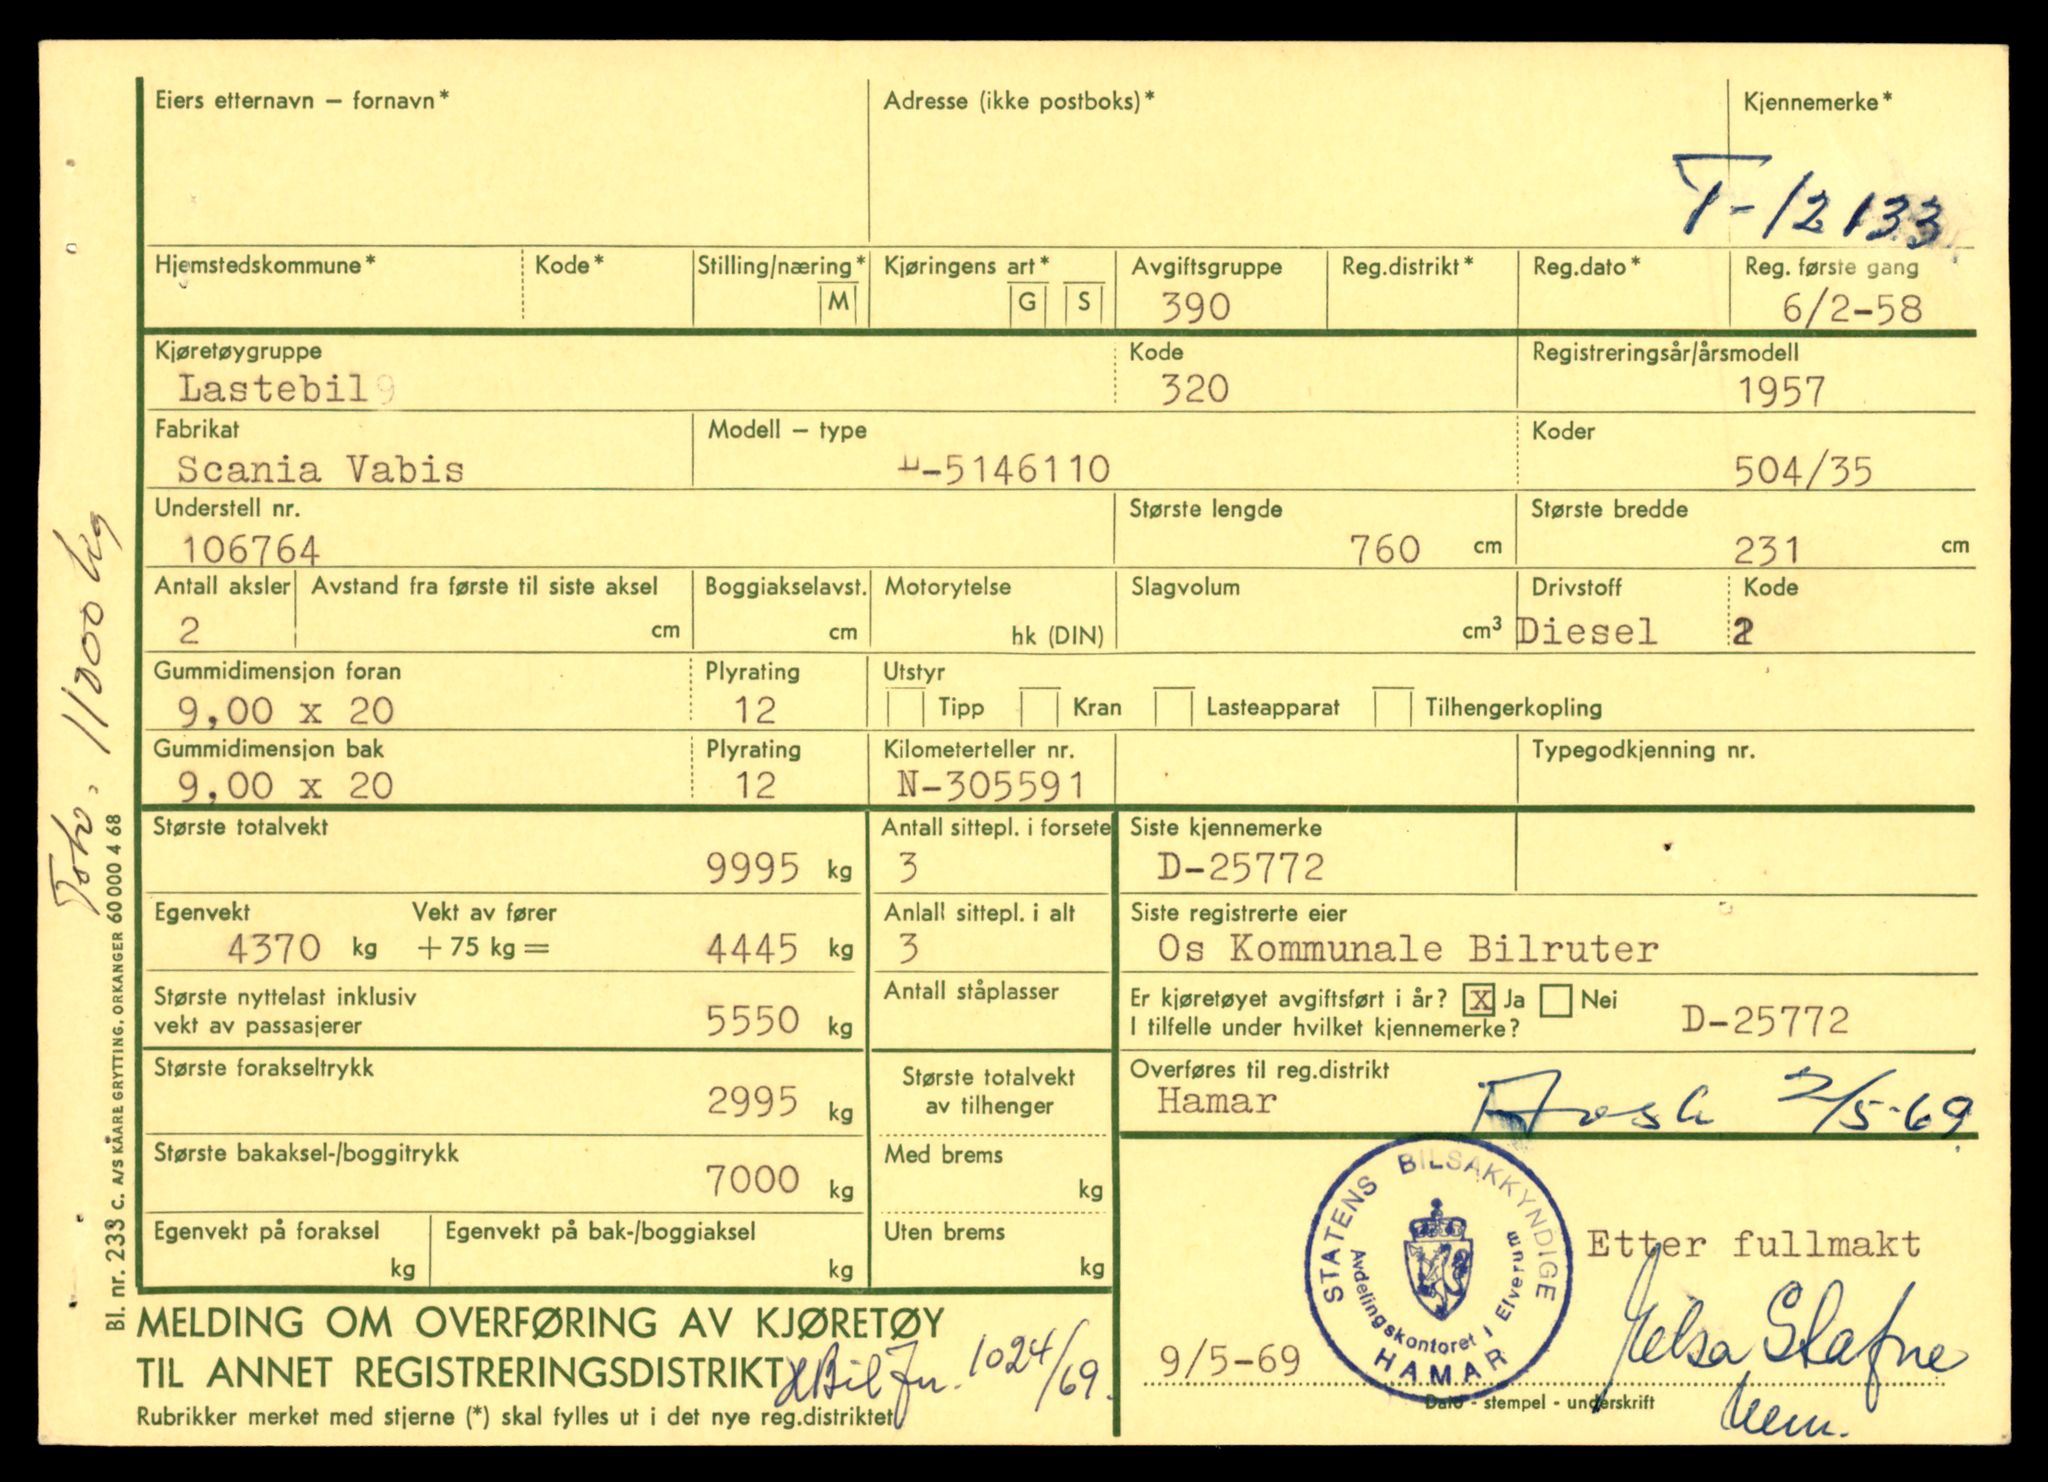 Eiers etternavn – fornavn* Adresse (ikke postboks)* Kjennemerke*
T-12133
Hjemstedskommune* Kode* Stilling/næring* Kjøringens art* Avgiftsgruppe Reg.distrikt* Reg.dato* Reg. første gang
M G S 390 6/2-58
Kjøretøygruppe Kode Registreringsår/årsmodell
Lastebil 320 1957
Fabrikat Modell – type Koder
Scania Vabis L-5146110 504/35
Understell nr. Største lengde Største bredde
106764 760 cm 231 cm
Antall aksler Avstand fra første til siste aksel Boggiakselavst. Motorytelse Slagvolum Drivstoff Kode
2 cm cm hk (DIN) cm³ Diesel 2
Gummidimensjon foran Plyrating Utstyr
9,00 x 20 12 Tipp Kran Lasteapparat Tilhengerkopling
Gummidimensjon bak Plyrating Kilometerteller nr. Typegodkjenning nr.
9,00 x 20 12 N-305591
Største totalvekt Antall sittepl. i forsete Siste kjennemerke
9995 kg 3 D-25772
Egenvekt Vekt av fører Anlall sittepl. i alt Siste registrerte eier
4370 kg + 75 kg = 4445 kg 3 Os Kommunale Bilruter
Største nyttelast inklusiv Antall ståplasser Er kjøretøyet avgiftsført i år? X Ja Nei
vekt av passasjerer 5550 kg I tilfelle under hvilket kjennemerke? D-25772
Største forakseltrykk Største totalvekt Overføres til reg.distrikt
2995 kg av tilhenger Hamar 2/5-69
Største bakaksel-/boggitrykk Med brems
7000 kg kg
Egenvekt på foraksel Egenvekt på bak-/boggiaksel Uten brems
kg kg kg
STATENS BILSAKKYNDIGE
Avdelingskontoret i Elverum
HAMAR
Etter fullmakt
9/5-69
Dato - stempel - underskrift
MELDING OM OVERFØRING AV KJØRETØY
TIL ANNET REGISTRERINGSDISTRIKT
1024/69.
Rubrikker merket med stjerne (*) skal fylles ut i det nye reg.distriktet
Bl. nr. 233 c. A/S KAARE GRYTTING. ORKANGER 60 000 4 68
Totv. 11000 kg